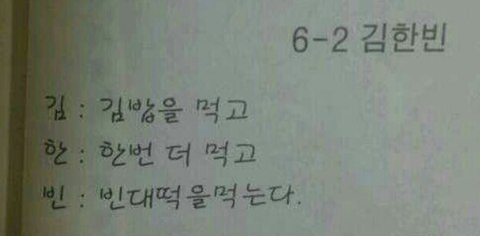 6-2 김한빈
김 : 김밥을 먹고
한 : 한번 더 먹고
빈 : 빈대떡을먹는다.